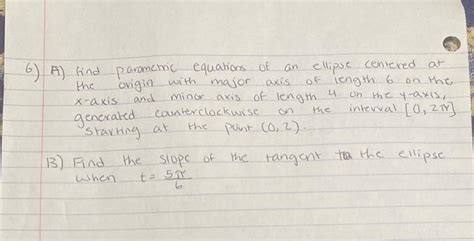 6) A) Find parametric equations of an ellipse centered at
the origin with major axis of length 6 on the
x-axis and minor axis of length 4 on the y-axis,
generated counterclockwise on the interval [0, 2π]
starting at the point (0, 2).
B) Find the slope of the tangent to the ellipse
when t = 5π/6